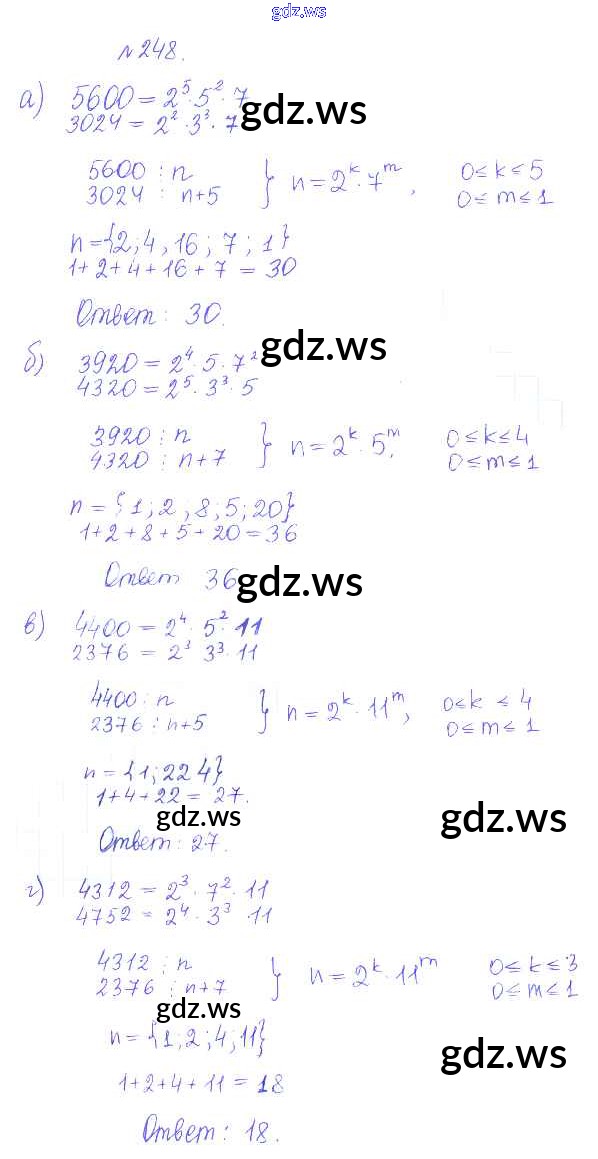 gdz.ws
№248.
а) 5600 = 2⁵·5²·7
3024 = 2²·3³·7
gdz.ws
5600 ⋮ n
3024 ⋮ n+5
} n = 2ᵏ·7ᵐ, 0≤k≤5
0≤m≤1
n={2;4,16;7;1}
1+2+4+16+7 = 30
Ответ: 30.
gdz.ws
б) 3920 = 2⁴·5·7²
4320 = 2⁵·3³·5
3920 ⋮ n
4320 ⋮ n+7
} n = 2ᵏ·5ᵐ, 0≤k≤4
0≤m≤1
n = {1;2;8;5;20}
1+2+8+5+20=36
Ответ 36
gdz.ws
в) 4400 = 2⁴·5²·11
2376 = 2³ 3³·11
4400 ⋮ n
2376 ⋮ n+5
} n = 2ᵏ·11ᵐ, 0≤k ≤4
0≤m≤1
n = {1;22 4}
1+4+22 = 27.
gdz.ws
gdz.ws
Ответ: 27.
г) 4312 = 2³·7²·11
4752 = 2⁴·3³ 11
4312 ⋮ n
2376 ⋮ n+7
} n = 2ᵏ·11ᵐ 0≤k≤3
0≤m≤1
gdz.ws
n = {1;2;4;11}
gdz.ws
1+2+4+11 = 18
Ответ: 18.